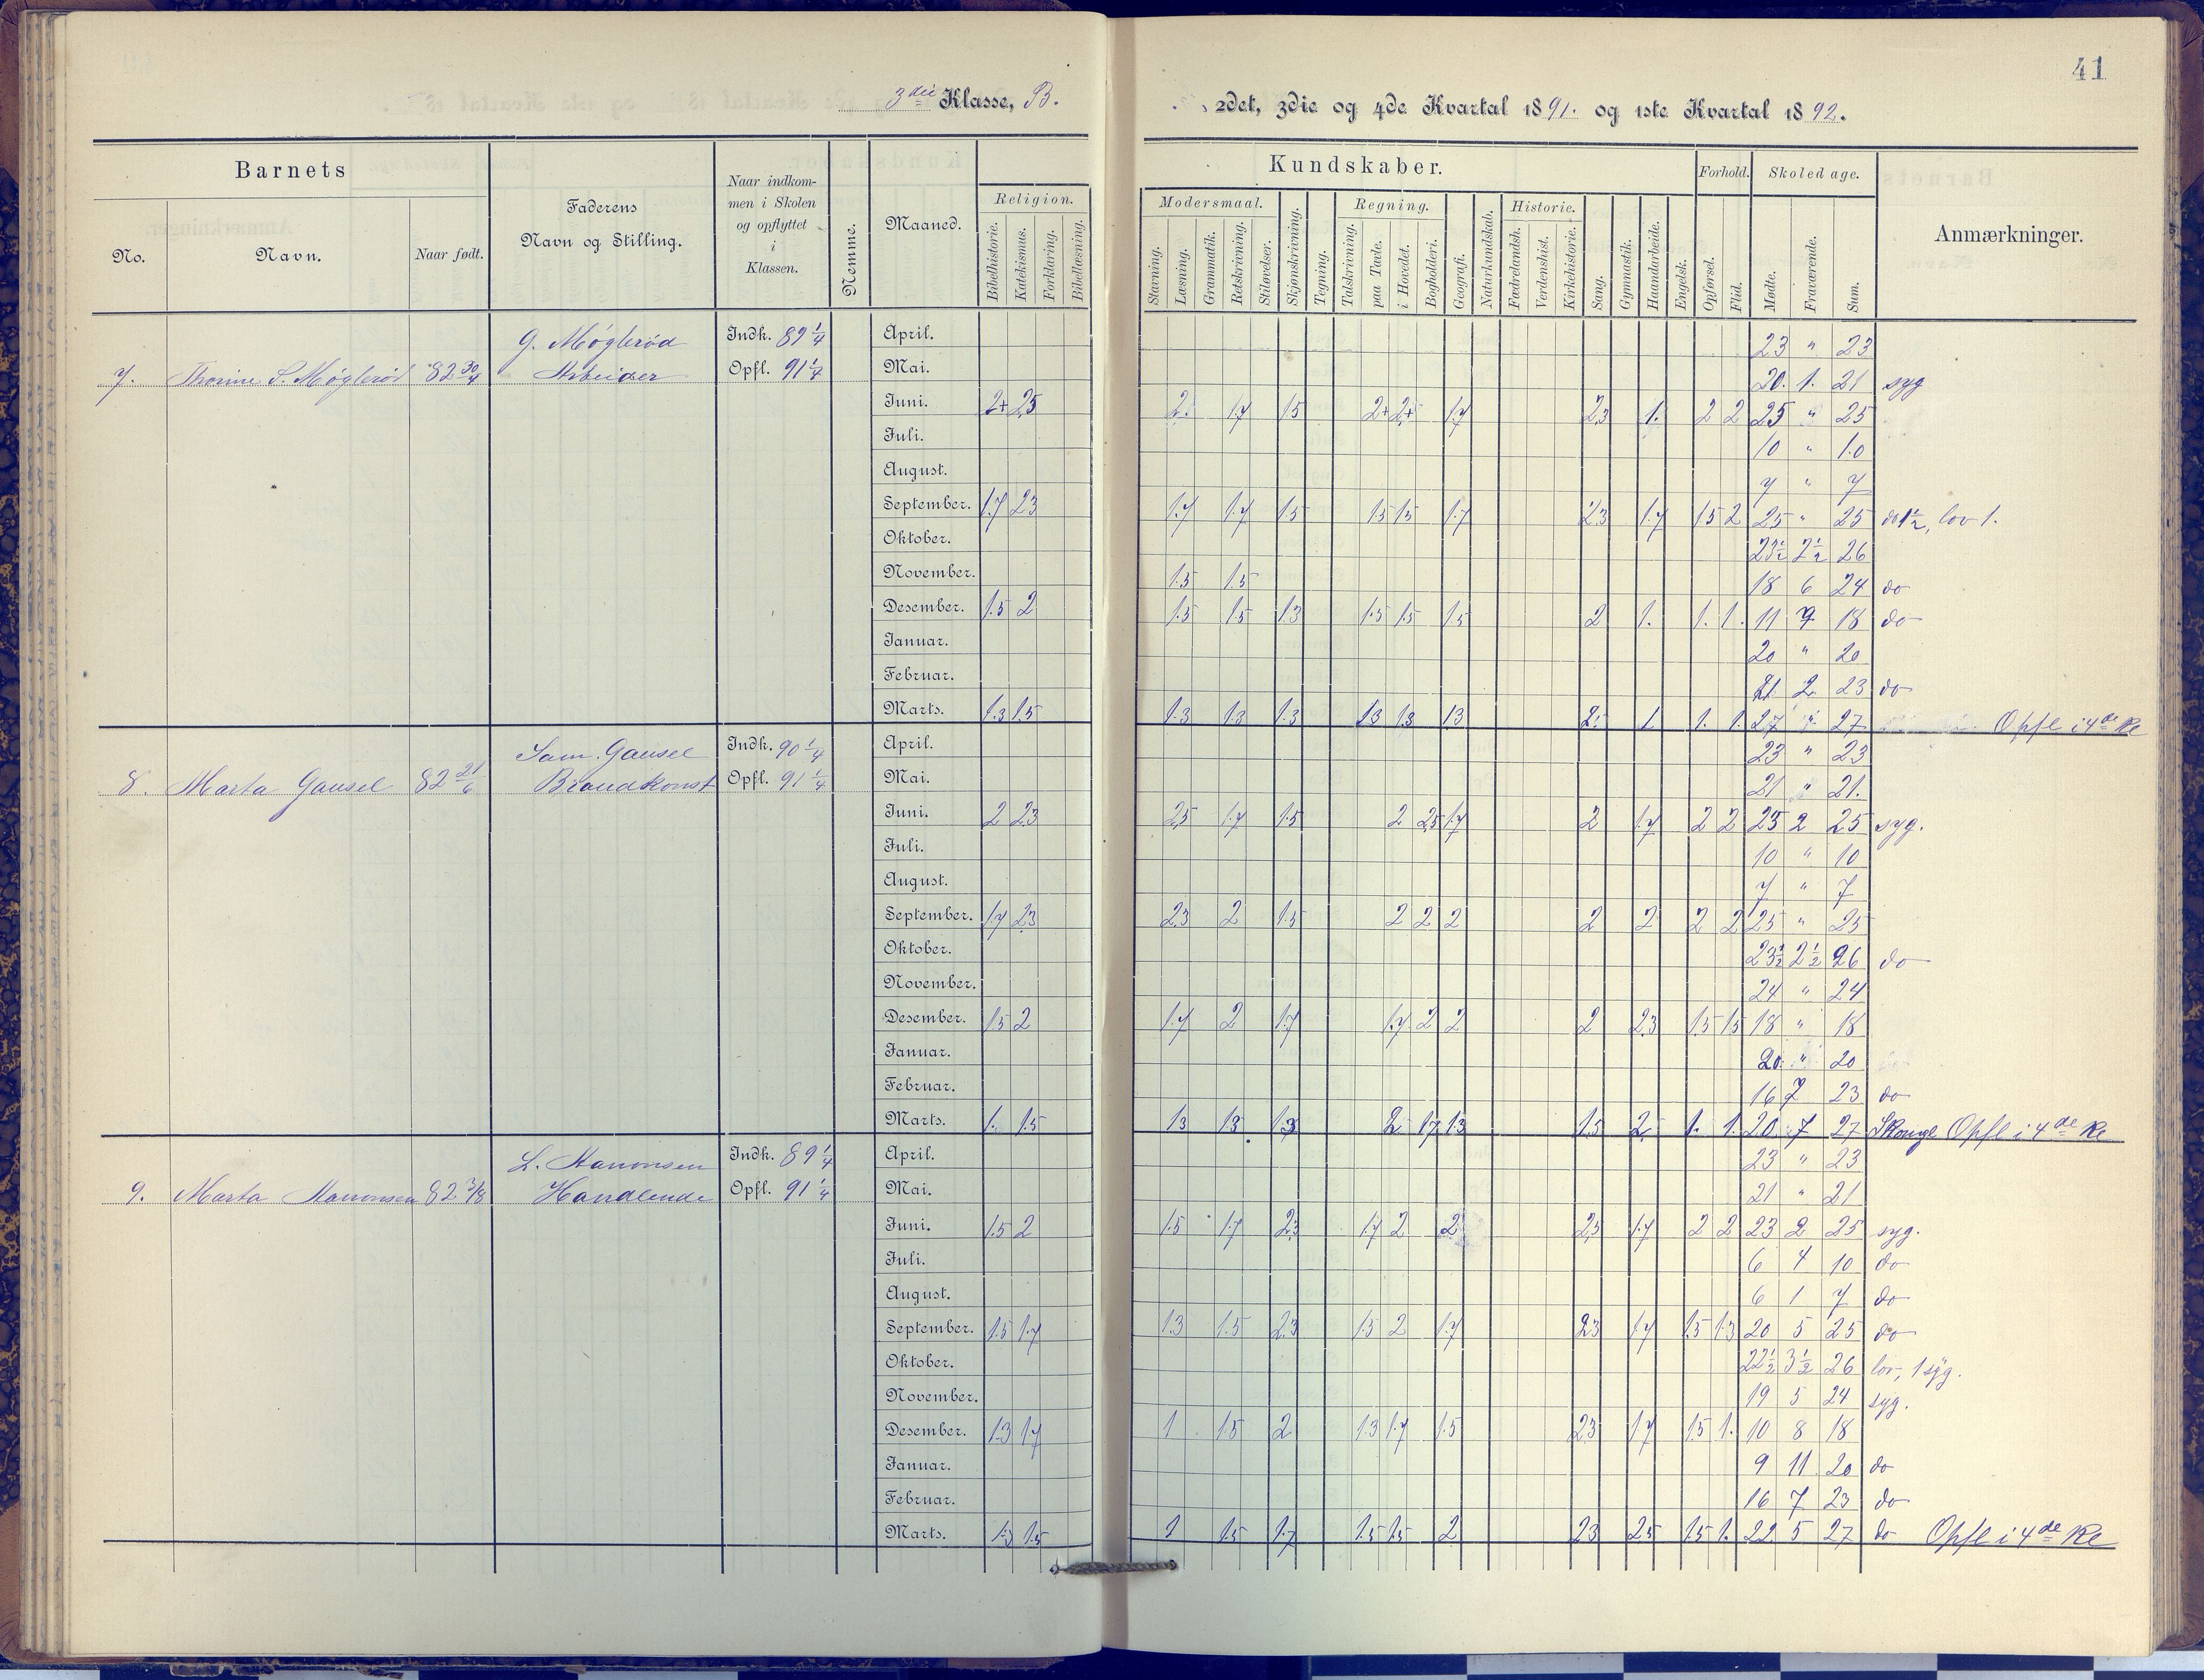 41
3die Klasse, B.
2det, 3die og 4de Kvartal 1891. og 1ste Kvartal 1892.
Barnets
No.
Navn.
Naar født.
Faderens
Navn og Stilling.
Naar indkom-
men i Skolen
og opflyttet
i
Klassen.
Nemme.
Maaned.
Kundskaber.
Religion.
Bibelhistorie.
Katekismus.
Forklaring.
Bibellæsning.
Modersmaal.
Stavning.
Læsning.
Grammatik.
Retskrivning.
Stiløvelser.
Skjønskrivning.
Tegning.
Regning.
Talskrivning.
paa Tavle.
i Hovedet.
Bogholderi.
Geografi.
Naturkundskab.
Historie.
Fædrelandsh.
Verdenshist.
Kirkehistorie.
Sang.
Gymnastik.
Haandarbeide.
Engelsk.
Forhold.
Opførsel.
Flid.
Skoledage.
Mødte.
Fraværende.
Sum.
Anmærkninger.
7. Thorine S. Møglerød 82 30/4
G. Møglerød
Arbeider
Indk. 89 1/4
Opfl. 91 1/4
April. 23 " 23
Mai. 20. 1. 21 syg
Juni. 2+ 2.5 2. 1.7 1.5 2+ 2+ 1.7 2.3 1. 2 2 25 " 25
Juli. 10 " 10
August. 7 " 7
September. 1.7 2.3 1.7 1.7 1.5 1.5 1.5 1.7 2.3 1.7 1.5 2 25 " 25 do 1½, lov 1.
Oktober. 23½ 2½ 26
November. 1.5 1.5 18 6 24 do
Desember. 1.5 2 1.5 1.5 1.3 1.5 1.5 1.5 2 1. 1. 1. 11 7 18 do
Januar. 20 " 20
Februar. 21 2 23 do
Marts. 1.3 1.5 1.3 1.3 1.3 1.3 1.3 1.3 2. 1 1. 1. 27 " 27 Opfl i 4de Kl
8. Marta Gausel 82 21/6
Sam. Gausel
Brandkonst
Indk. 90 1/4
Opfl. 91 1/4
April. 23 " 23
Mai. 21 " 21.
Juni. 2 2.3 2.5 1.7 1.5 2 2.5 1.7 2 1.7 2 2 23 2 25 syg.
Juli. 10 " 10
August. 7 " 7
September. 1.7 2.3 2.3 2 1.5 2 2 2 2 2 2 2 25 " 25
Oktober. 23½ 2½ 26 do
November. 24 " 24
Desember. 1.5 2 1.7 2 1.7 1.7 2 2 2 2.3 1.5 1.5 18 " 18
Januar. 20. " 20
Februar. 16 7 23 do
Marts. 1. 1.5 1.3 1.3 1.3 2 1.7 1.3 1.5 2. 1. 1. 20 7 27 Opfl i 4de Kl
9. Marta 82 3/8
L.
Handlende
Indk. 89 1/4
Opfl. 91 1/4
April. 23 " 23
Mai. 21 " 21
Juni. 1.5 2 1.5 1.7 2.3 1.7 2 2 2.3 1.7 2 2 23 2 25 syg.
Juli. 6 4 10 do
August. 6 1 7 do
September. 1.5 1.7 1.3 1.5 2.3 1.5 2 1.7 2.3 1.7 1.5 1.3 20 5 25 do
Oktober. 22½ 3½ 26 lov, 1 syg.
November. 19 5 24 syg.
Desember. 1.3 1.7 1 1.5 2 1.3 1.7 1.5 2.3 1.7 1.5 1. 10 8 18
Januar. 9 11 20 do
Februar. 16 7 23 do
Marts. 1.3 1.5 1 1.5 1.7 1.5 1.5 2 2.3 2.5 1.5 1. 22 5 27 do Opfl i 4de Kl